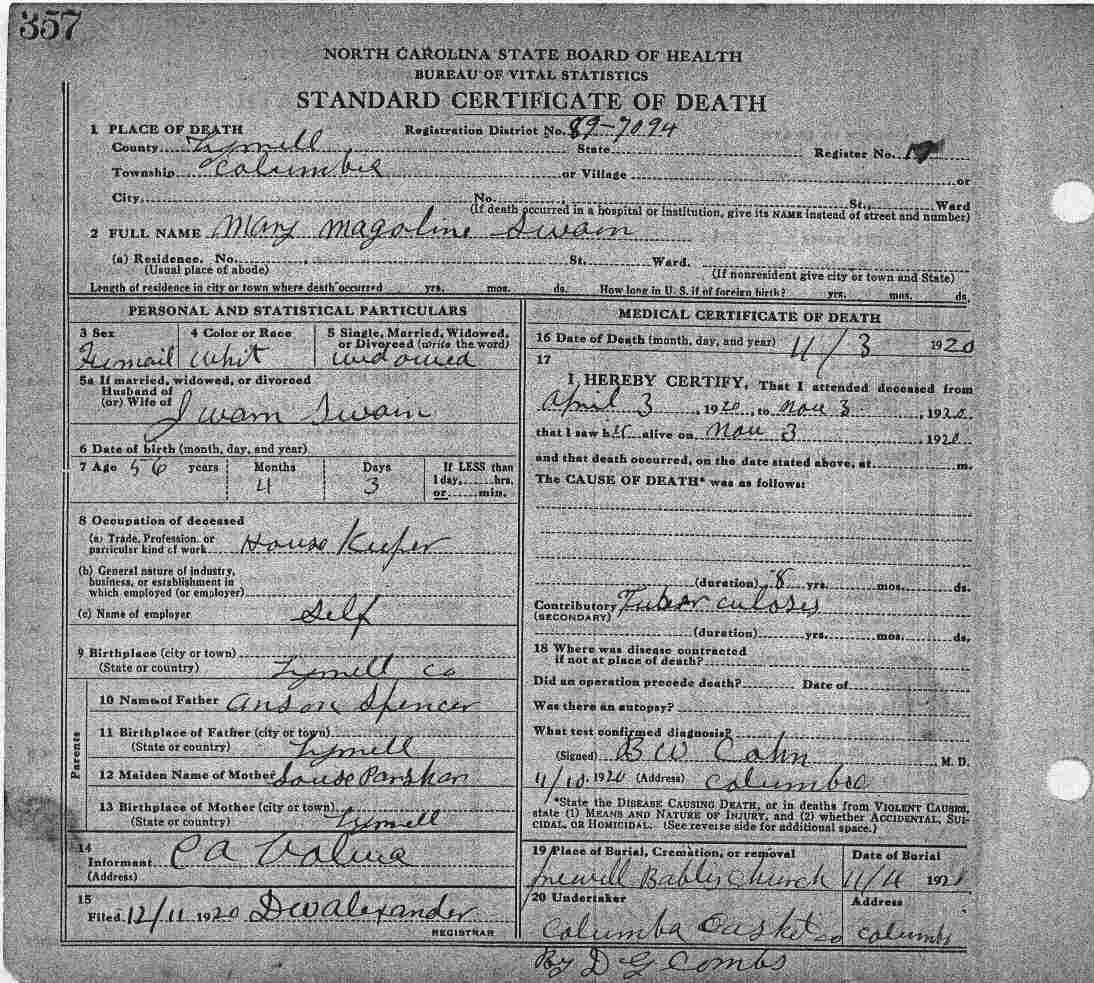 357
NORTH CAROLINA STATE BOARD OF HEALTH
BUREAU OF VITAL STATISTICS
STANDARD CERTIFICATE OF DEATH
1 PLACE OF DEATH Registration District No. 89-7094
County Tyrrell State Register No.
Township Columbia or Village or
City No. St., Ward
(If death occurred in a hospital or institution, give its NAME instead of street and number)
2 FULL NAME Mary Magoline Swain
(a) Residence. No. St. Ward.
(Usual place of abode) (If nonresident give city or town and State)
Length of residence in city or town where death occurred yrs. mos. ds. How long in U. S. if of foreign birth? yrs. mos. ds.
PERSONAL AND STATISTICAL PARTICULARS
3 Sex 4 Color or Race 5 Single, Married, Widowed,
or Divorced (write the word)
Femail Whit Widowed
5a If married, widowed, or divorced
Husband of
(or) Wife of Swain
6 Date of birth (month, day, and year)
7 Age 56 years Months Days If LESS than
4 3 1 day, hrs.
or min.
8 Occupation of deceased
(a) Trade, Profession, or
particular kind of work House Keeper
(b) General nature of industry,
business, or establishment in
which employed (or employer)
(c) Name of employer Self
9 Birthplace (city or town)
(State or country) Tyrrell Co
Parents
10 Name of Father Anson Spencer
11 Birthplace of Father (city or town)
(State or country) Tyrrell
12 Maiden Name of Mother
13 Birthplace of Mother (city or town)
(State or country) Tyrrell
14
Informant C A
(Address)
15
Filed 12/11 1920 D W Alexander
REGISTRAR
MEDICAL CERTIFICATE OF DEATH
16 Date of Death (month, day, and year) 11/3 1920
17
I HEREBY CERTIFY, That I attended deceased from
April 3, 1920, to Nov 3, 1920
that I saw her alive on Nov 3, 1920
and that death occurred, on the date stated above, at m.
The CAUSE OF DEATH* was as follows:
(duration) 8 yrs. mos. ds.
Contributory Tuberculosis
(SECONDARY)
(duration) yrs. mos. ds.
18 Where was disease contracted
if not at place of death?
Did an operation precede death? Date of
Was there an autopsy?
What test confirmed diagnosis?
(Signed) B W Cohn M. D.
11/10, 1920 (Address) Columbia
*State the DISEASE CAUSING DEATH, or in deaths from VIOLENT CAUSES,
state (1) MEANS AND NATURE OF INJURY, and (2) whether ACCIDENTAL, SUI-
CIDAL, OR HOMICIDAL. (See reverse side for additional space.)
19 Place of Burial, Cremation, or removal Date of Burial
Church 11/4 192
20 Undertaker Address
Columba Casket Co Columbi
By D G Combs